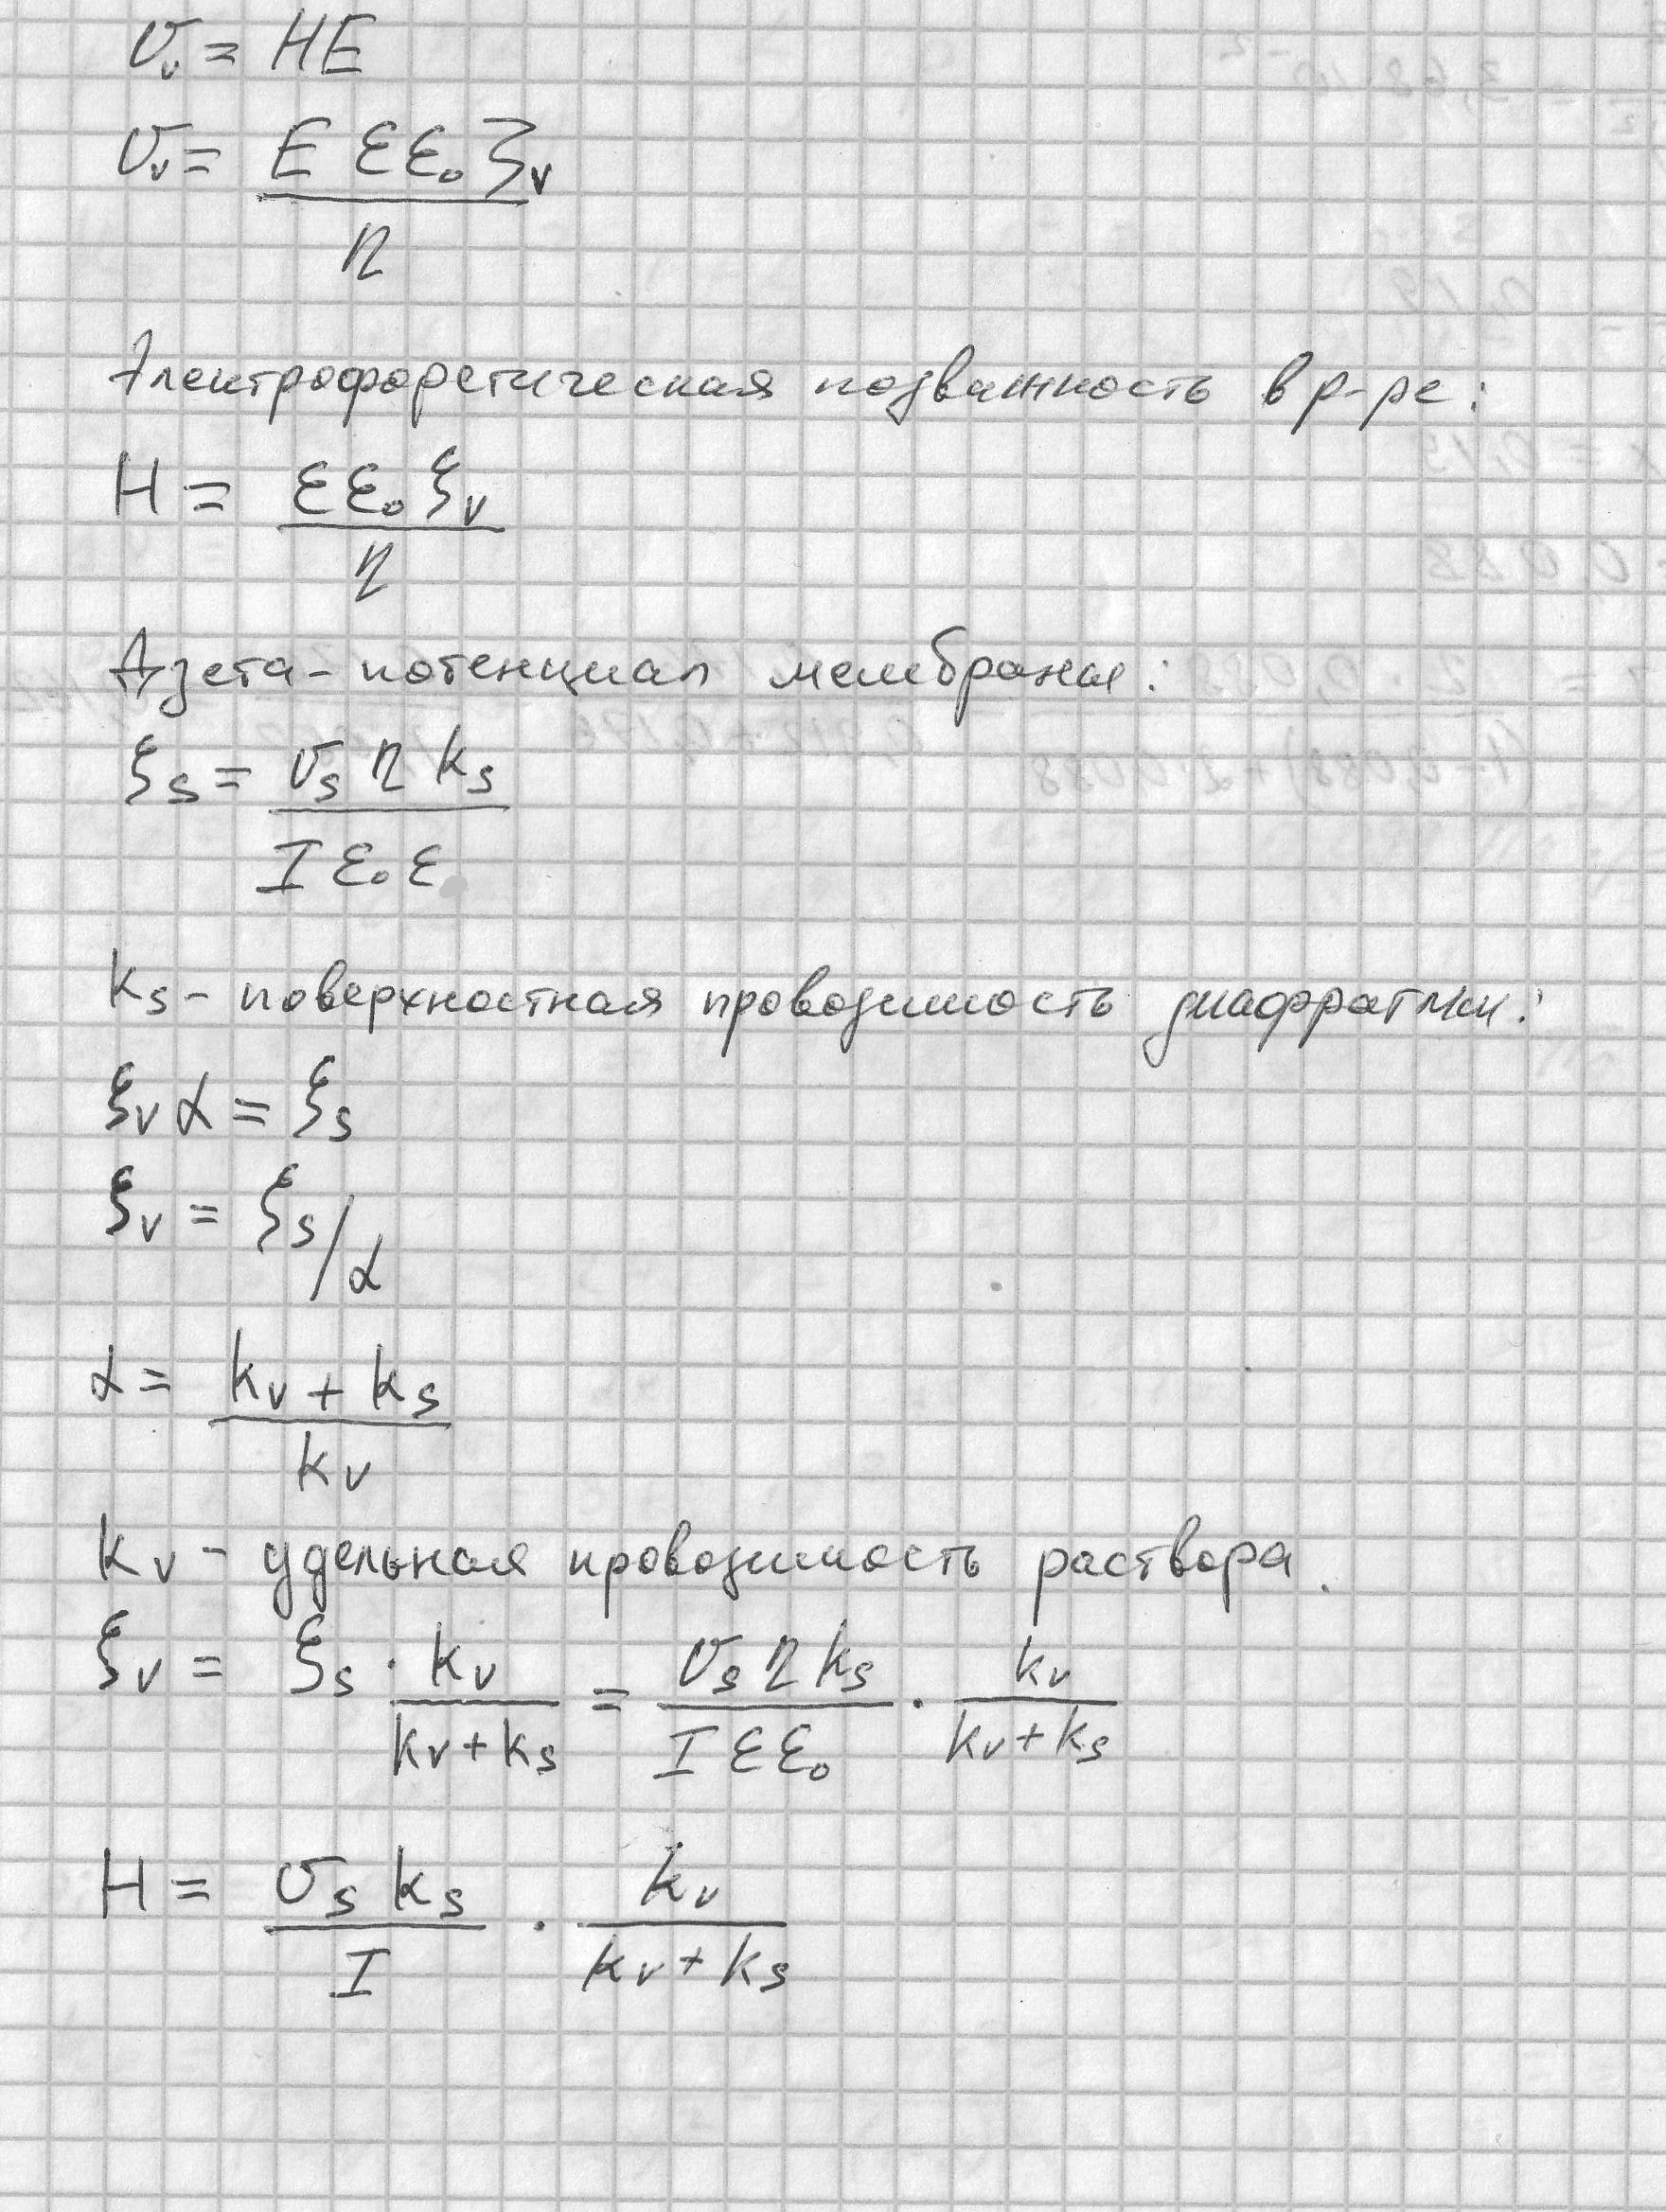 υᵥ = HE
υᵥ = E εε₀ ζᵥ / η
Электрофоретическая подвижность в р-ре:
H = εε₀ ξᵥ / η
Дзета-потенциал мембраны:
ξs = υs η ks / I ε₀ ε
ks - поверхностная проводимость диафрагмы:
ξᵥ α = ξs
ξᵥ = ξs / α
α = kᵥ + ks / kᵥ
kᵥ - удельная проводимость раствора.
ξᵥ = ξs · kᵥ / kᵥ + ks = υs η ks / I εε₀ · kᵥ / kᵥ + ks
H = υs ks / I · kᵥ / kᵥ + ks